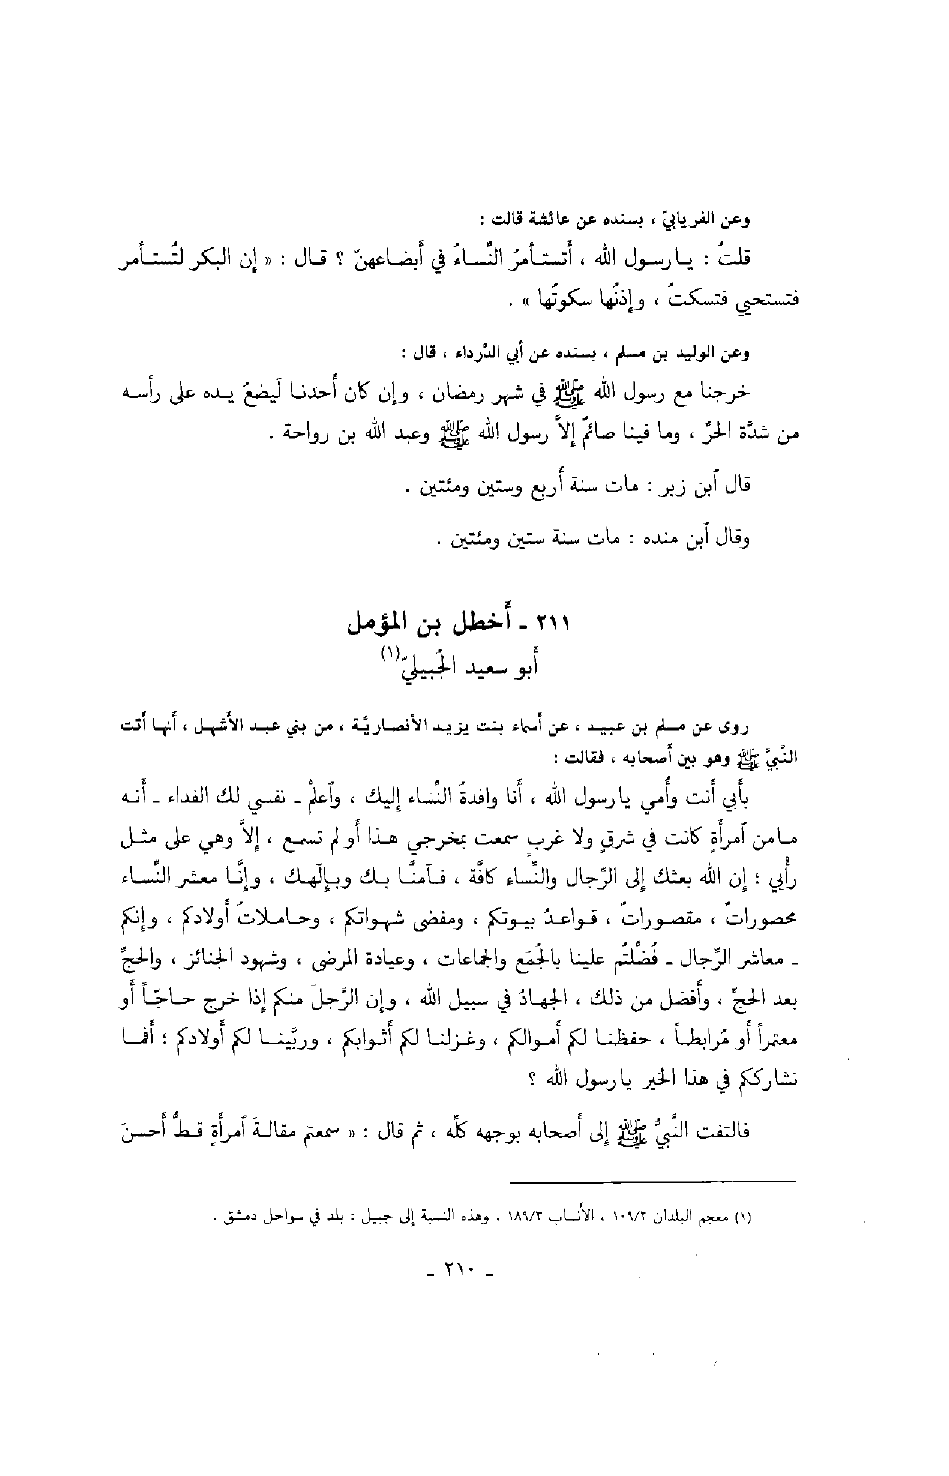 وعن الفريابيّ ، بسنده عن عائشة قالت :
قلتُ : يارسول الله ، أتستأمرُ النِّساءُ في أبضاعهنّ ؟ قال : « إن البكر لتُستأمر
فتستحيي فتسكتُ ، وإذنُها سكوتُها » .
وعن الوليد بن مسلم ، بسنده عن أبي الدَّرداء ، قال :
خرجنا مع رسول الله ﷺ في شهر رمضان ، وإن كان أحدنا لَيضعُ يده على رأسه
من شدَّة الحرِّ ، وما فينا صائمٌ إلاَّ رسول الله ﷺ وعبد الله بن رواحة .
قال آبن زبر : مات سنة أربع وستين ومئتين .
وقال آبن منده : مات سنة ستين ومئتين .
٢١١ - أخطل بن المؤمل
أبو سعيد الجُبيليّ(١)
روى عن مسلم بن عبيد ، عن أسماء بنت يزيد الأنصاريَّة ، من بني عبد الأشهل ، أنها أتت
النَّبيَّ ﷺ وهو بين أصحابه ، فقالت :
بأبي أنت وأمي يارسول الله ، أنا وافدةُ النِّساء إليك ، وآعلمْ - نفسي لك الفداء - أنه
مامن آمرأةٍ كانت في شرقٍ ولا غربٍ سمعت بمخرجي هذا أو لم تسمع ، إلاَّ وهي على مثل
رأيي ؛ إن الله بعثك إلى الرِّجال والنِّساء كافَّة ، فآمنَّا بك وبإلهك ، وإنَّا معشر النِّساء
محصوراتٌ ، مقصوراتٌ ، قواعدُ بيوتكم ، ومفضى شهواتكم ، وحاملاتُ أولادكم ، وإنكم
- معاشر الرِّجال - فُضِّلتُم علينا بالجُمَع والجماعات ، وعيادة المرضى ، وشهود الجنائز ، والحجِّ
بعد الحجِّ ، وأفضل من ذلك ، الجهادُ في سبيل الله ، وإن الرَّجلَ منكم إذا خرج حاجّاً أو
معتمراً أو مُرابطاً ، حفظنا لكم أموالكم ، وغزلنا لكم أثوابكم ، وربَّينا لكم أولادكم ؛ أفما
نشارككم في هذا الخير يارسول الله ؟
فالتفت النَّبيُّ ﷺ إلى أصحابه بوجهه كلِّه ، ثم قال : « سمعتم مقالةَ آمرأةٍ قطُّ أحسنَ
(١) معجم البلدان ١٠٩/٢ ، الأنساب ١٨٩/٣ . وهذه النسبة إلى جبيل : بلد في سواحل دمشق .
- ٢١٠ -